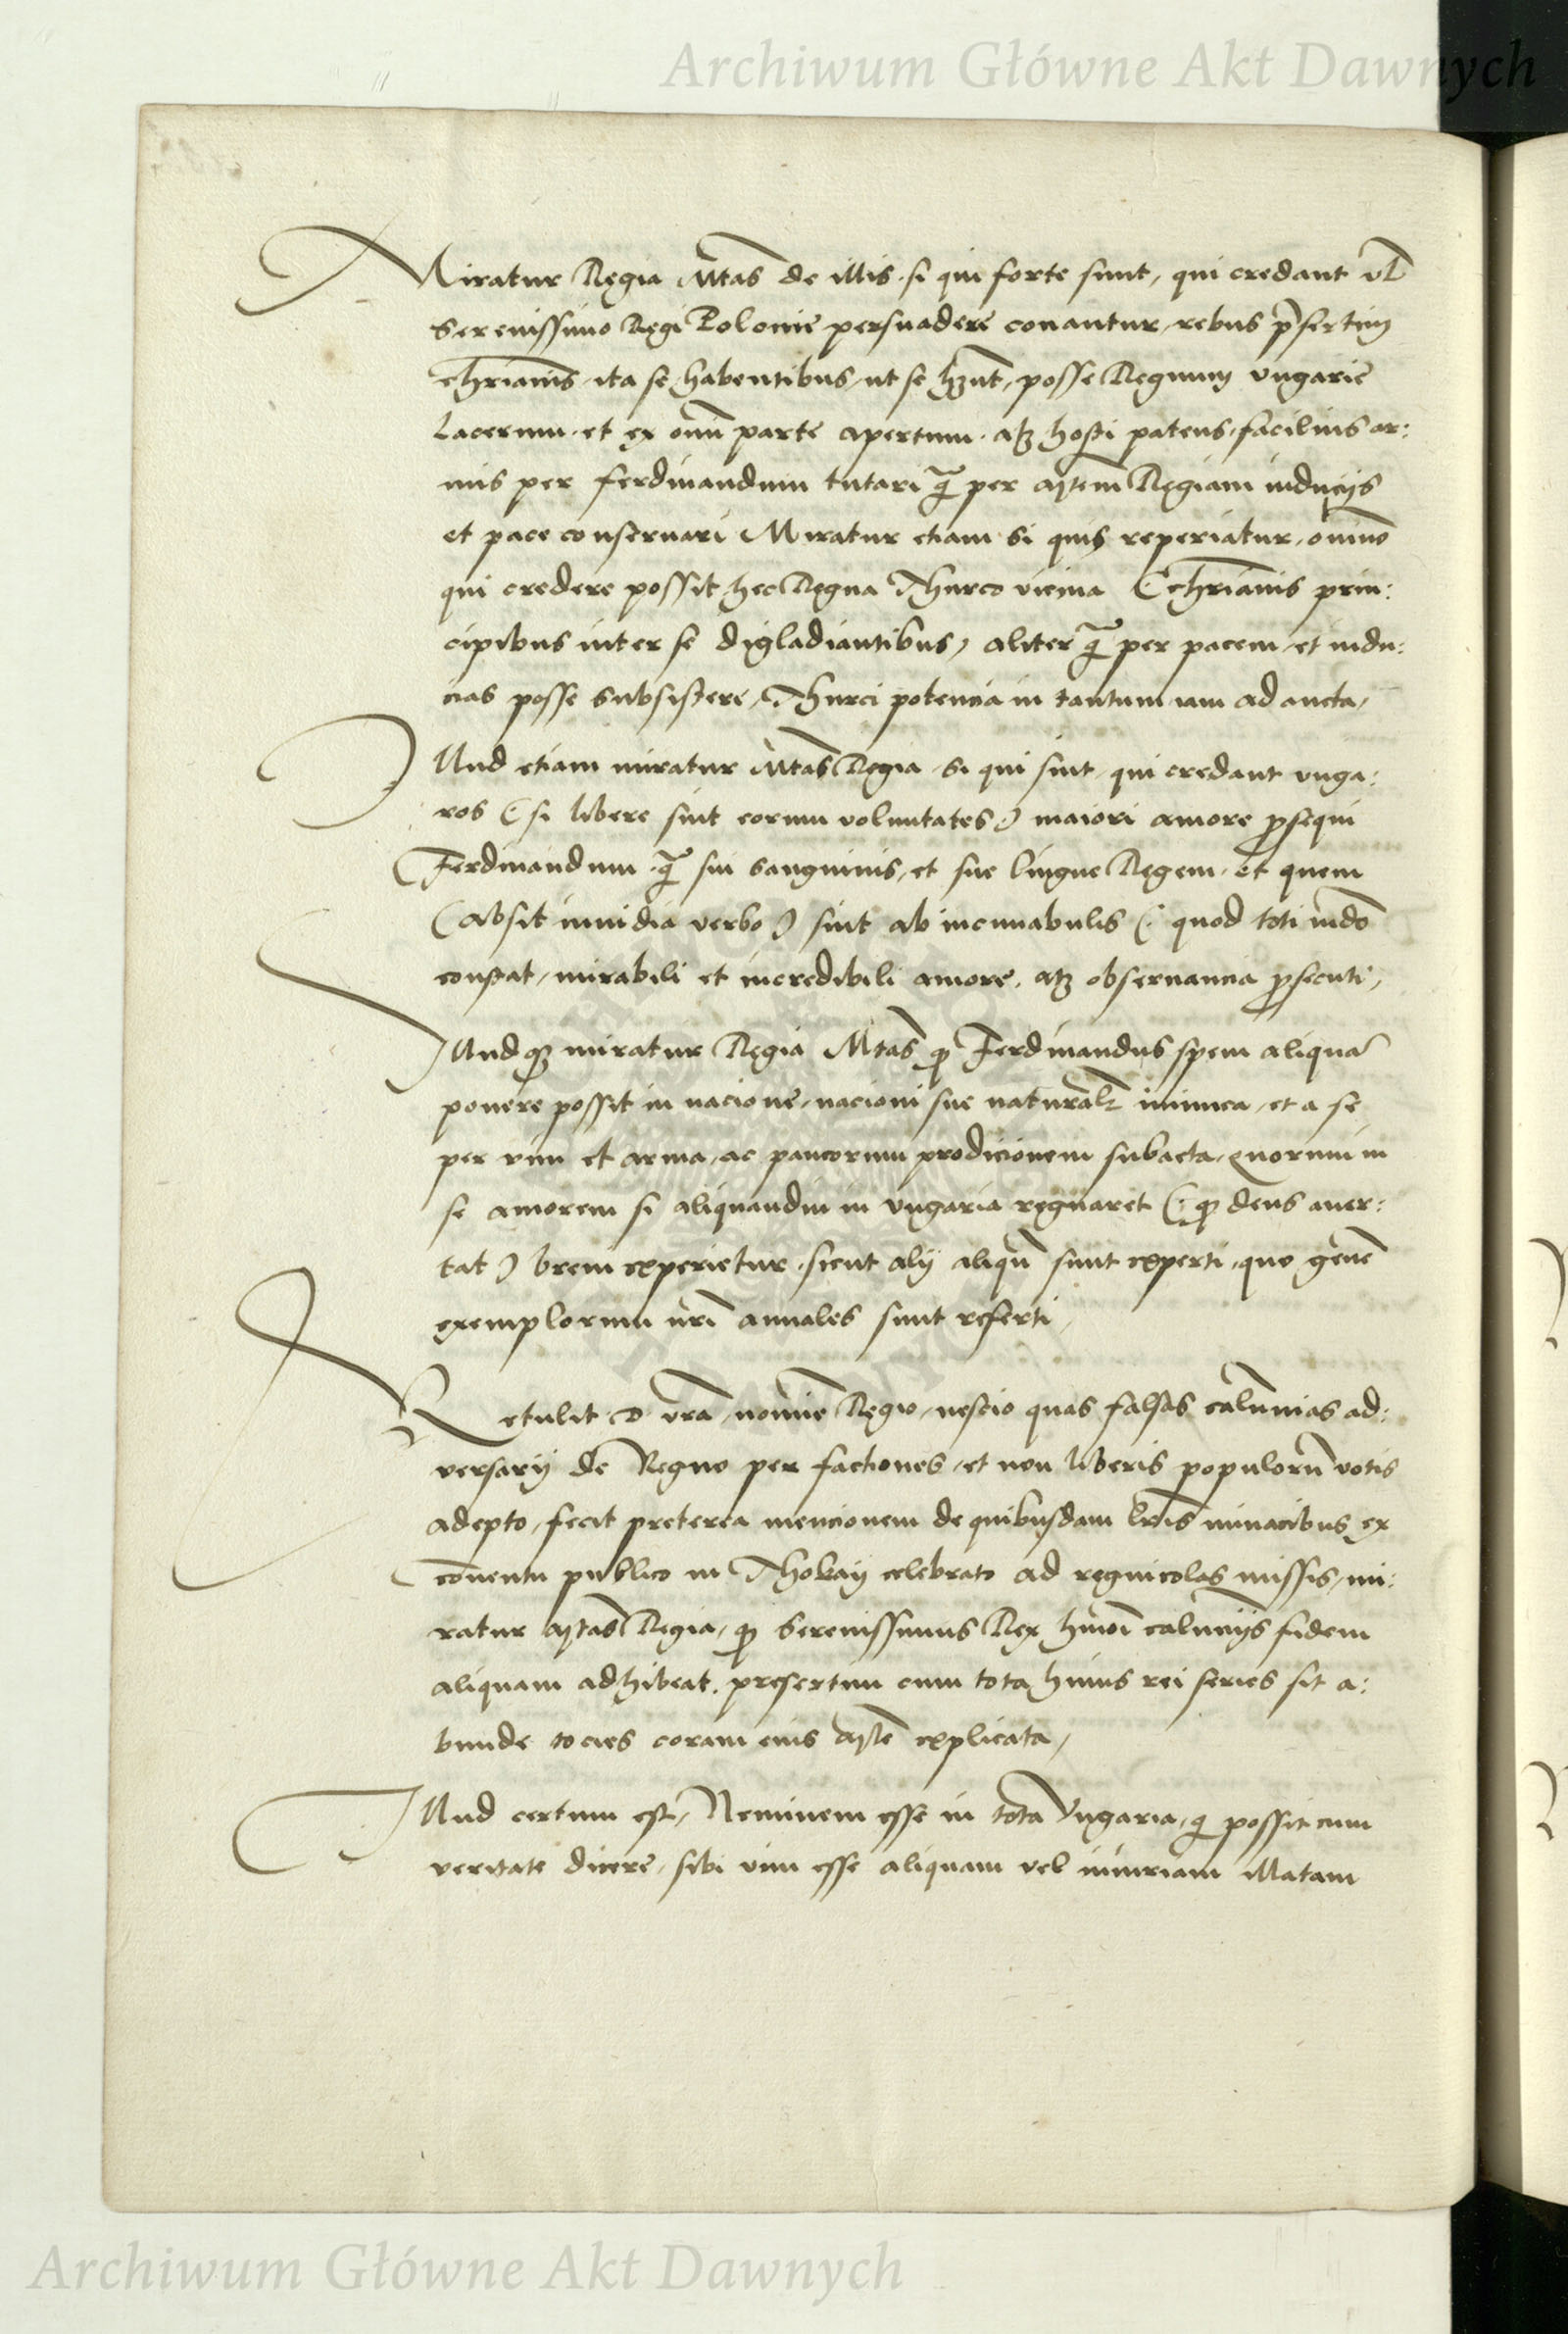 Archiwum Główne Akt Dawnych
Miratur Regia Mtas de illis. si qui forte sunt, qui credant vl
Serenissimo Regi Polonie persuadere conantur, rebus p̄sertim
christianis, ita se habentibus, ut se hn̄t, posse Regnum Vngarie
Lacerum. et ex om̄i parte apertum. atq3 hosti patens, facilius ar:
mis per ferdinandum tutari q̄ per Mtem Regiam inducijs
et pace conseruari Miratur etiam si quis reperiatur, om̄ino
qui credere possit hec Regna Thurco vicina (christianis prin:
cipibus inter se digladiantibus, aliter q̄ per pacem et indu:
cias posse subsistere, Thurci potencia in tantum iam ad aucta,
Illud etiam miratur Mtas Regia, si qui sint, qui credant vnga:
ros (si libere sint eorum voluntates) maiori amore ꝓsequi
Ferdinandum. q̄ sui sanguinis, et sue lingue Regem. et quem
(absit inuidia verbo) sint ab incunabulis (: quod toti mūdo
constat, mirabili et incredibili amore, atq3 obseruancia ꝓsecuti,
Illudq3 miratur Regia Mtas ꝙ Ferdinandus spem aliquā
ponere possit in nacione, nacioni sue naturalr̄ inimica, et a se
per vim et arma, ac paucorum prodicionem subacta, quorum in
se amorem si aliquandiu in Vngaria regnaret (: ꝙ deus auer:
tat) breui experietur, sicut alij aliqn̄ sunt experti, quo gen̄e
exemplorum nr̄i annales sunt referti,
Retulit. D. vr̄a, nomīe Regio, nescio quas falsas calumnias ad:
versarij de Regno per factiones, et non liberis populorū votis
adepto, fecit preterea mencionem de quibusdam lr̄is minacibus ex
conuentu publico in Thokaij celebrato ad regnicolas missis, mi:
ratur Mtas Regia, ꝙ Serenissimus Rex hmōi calumnijs fidem
aliquam adhibeat. presertim cum tota huius rei series sit a:
bunde tocies coram eius Mte explicata,
Illud certum est, Neminem esse in tota Vngaria, q̇ possit cum
veritate dicere, sibi vim esse aliquam vel iniuriam illatam
Archiwum Główne Akt Dawnych